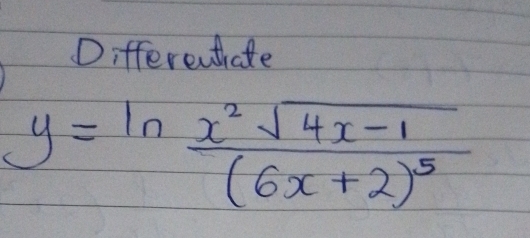 Differentiate
y = ln x² √4x-1
(6x+2)⁵